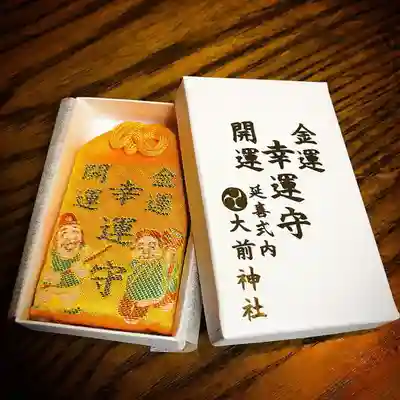 金運
開運
幸運守
金運
開運
幸運守
延喜式内
大前神社